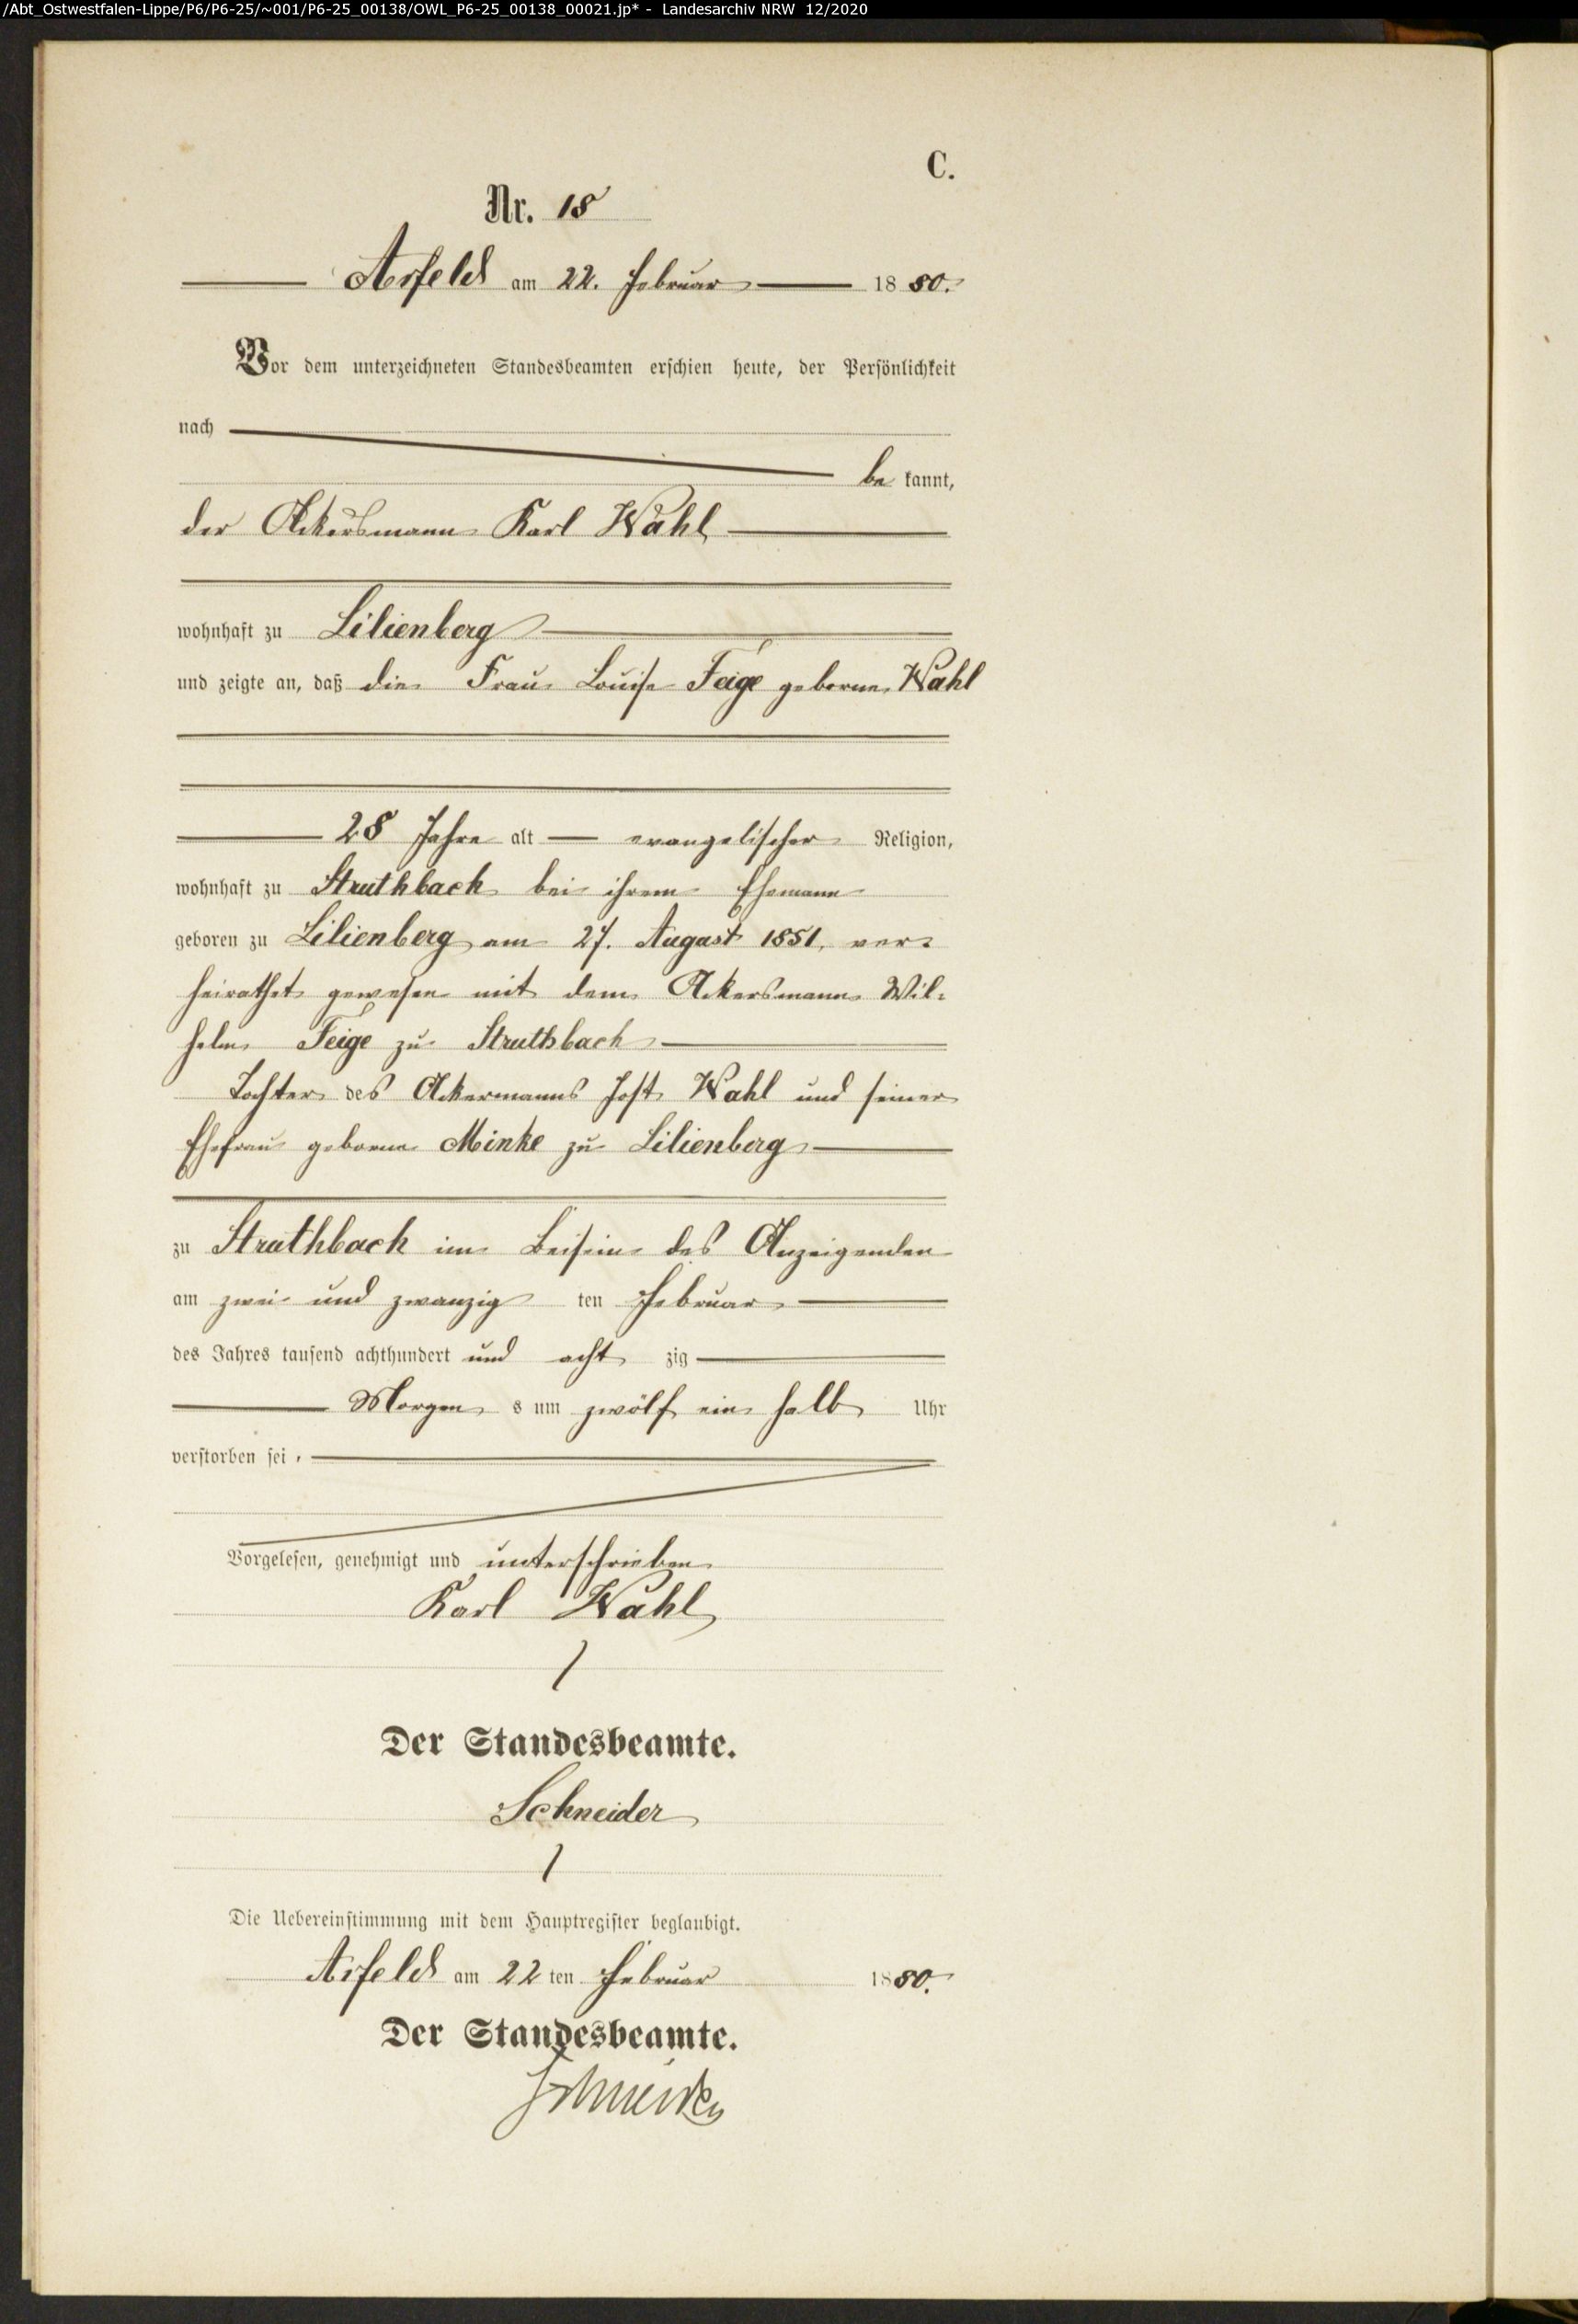 /Abt_Ostwestfalen-Lippe/P6/P6-25/~001/P6-25_00138/OWL_P6-25_00138_00021.jp* - Landesarchiv NRW 12/2020
C.
Nr. 18
Arfeld am 22. Februar 1880.
Vor dem unterzeichneten Standesbeamten erschien heute, der Persönlichkeit
nach
be kannt,
der Ackersmann Karl Wahl
wohnhaft zu Lilienberg
und zeigte an, daß die Frau Louise Feige geborne Wahl
28 Jahre alt evangelischer Religion,
wohnhaft zu Struthbach bei ihrem Ehemann
geboren zu Lilienberg am 27. August 1851, ver-
heirathet gewesen mit dem Ackersmann Wil-
helm Feige zu Struthbach
Tochter des Ackermanns Jost Wahl und seiner
Ehefrau geborne Minke zu Lilienberg
zu Struthbach im Beisein des Anzeigenden
am zwei und zwanzig ten Februar
des Jahres tausend achthundert und acht zig
Morgen s um zwölf ein halb Uhr
verstorben sei.
Vorgelesen, genehmigt und unterschrieben
Karl Wahl
Der Standesbeamte.
Schneider
Die Uebereinstimmung mit dem Hauptregister beglaubigt.
Arfeld am 22 ten Februar 1880.
Der Standesbeamte.
Schneider